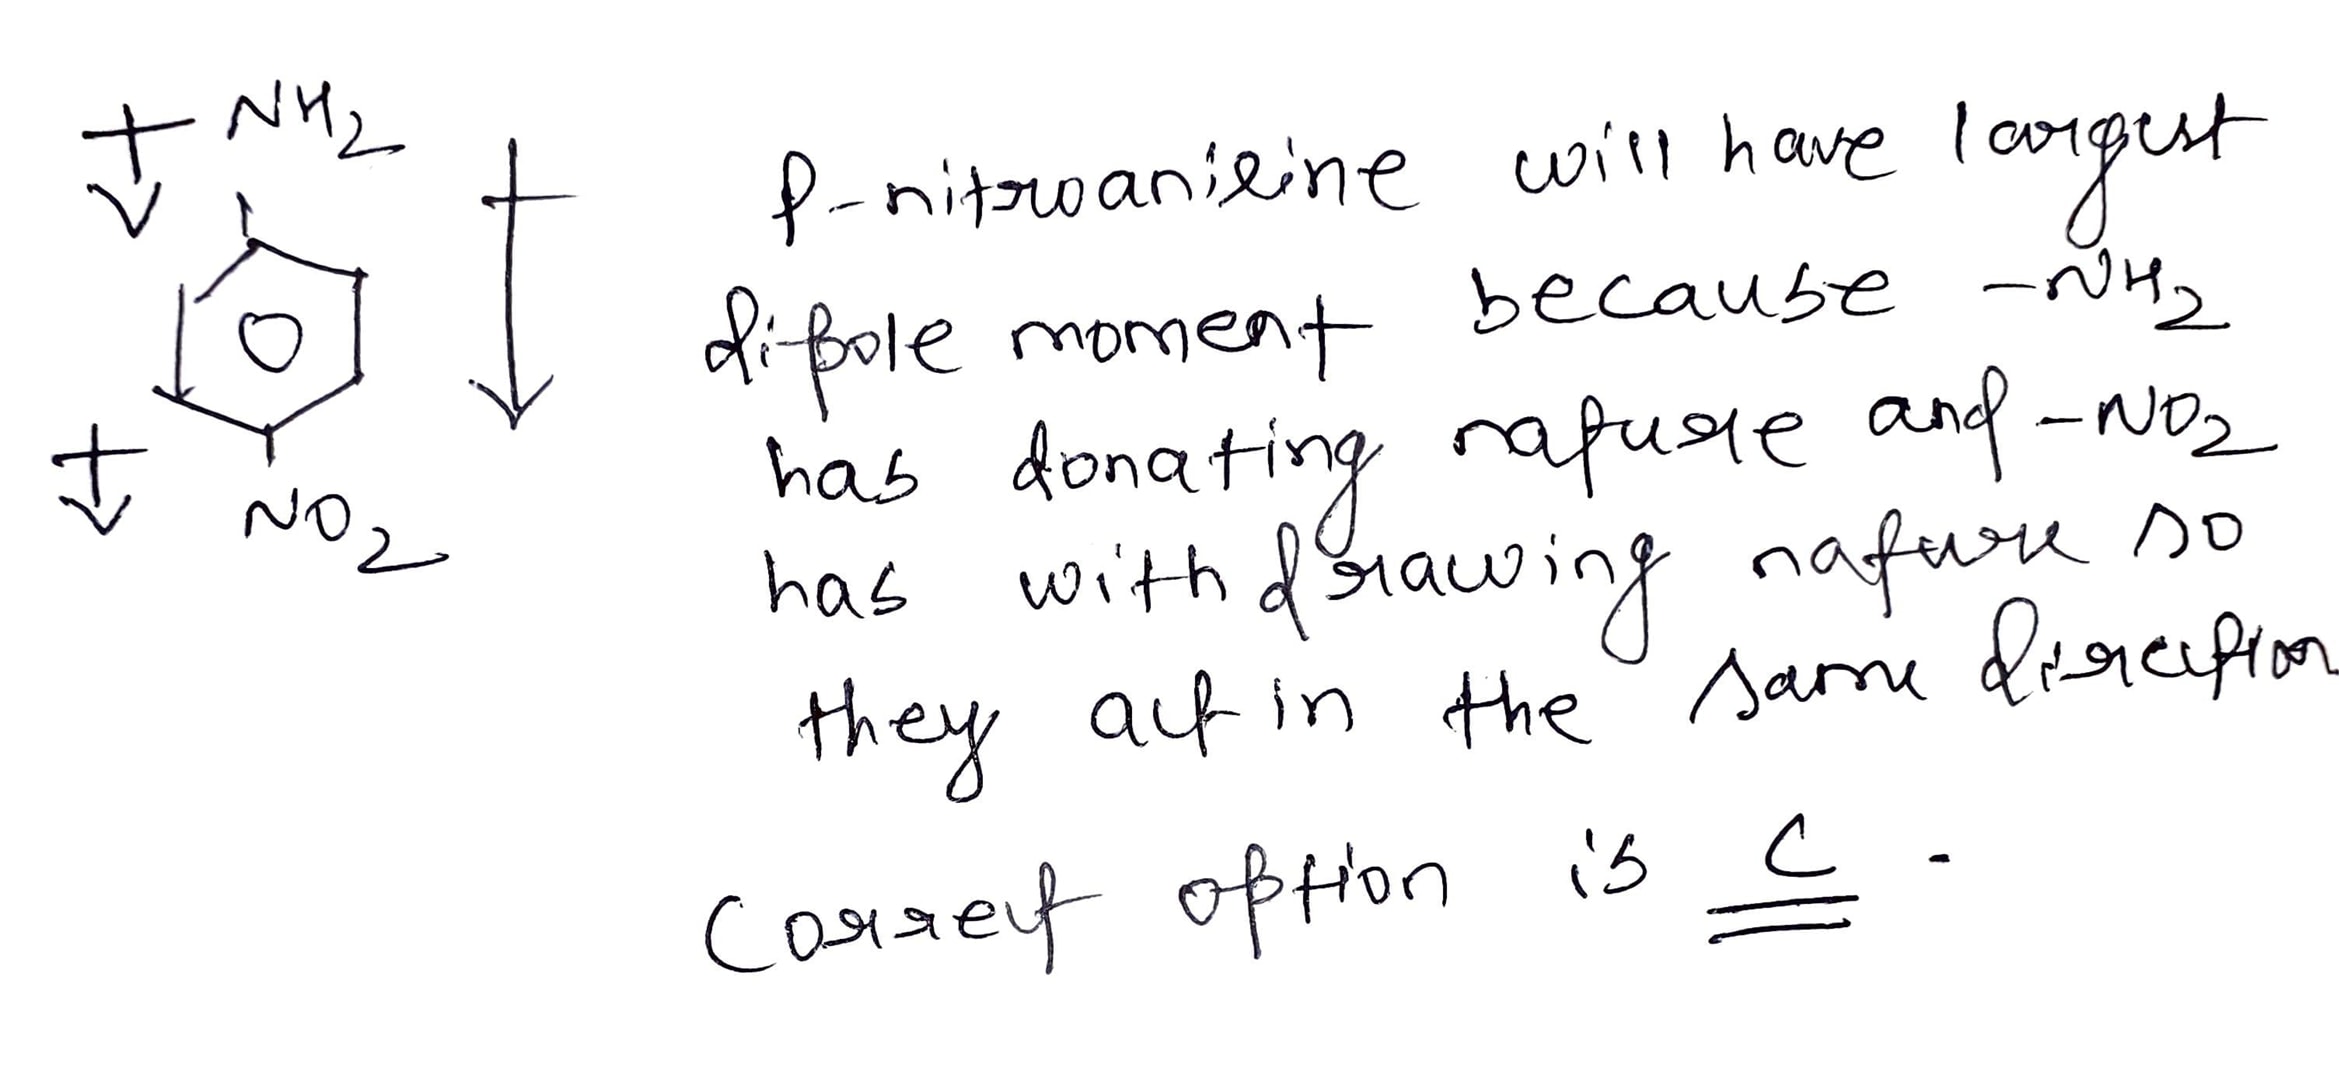 NH2
NO2
p-nitroaniline will have largest
dipole moment because -NH2
has donating nature and -NO2
has withdrawing nature so
they act in the same direction
Correct option is C.